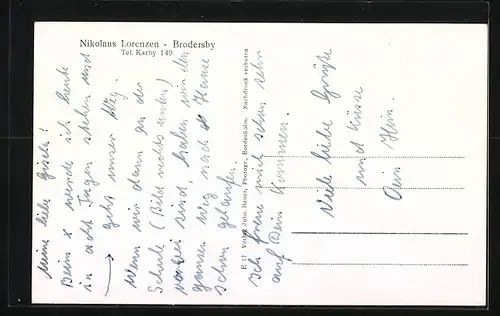 Nikolaus Lorenzen - Brodersby
Tel. Karby 149
Meine liebe Gisela!
Beim x werde ich heute
in acht Tagen stehen und
→ geht unser Weg.
Wenn wir dann an der
Schule (Bild rechts unten)
vorbei sind, haben wir den
ganzen Weg nach Hause
schon gelaufen.
Ich freue mich schon sehr
auf Dein Kommen.
Viele liebe Grüße
und Küsse
Dein Hein.
E 17 Verlag Johs. Hansen, Photogr., Bordesholm. Nachdruck verboten